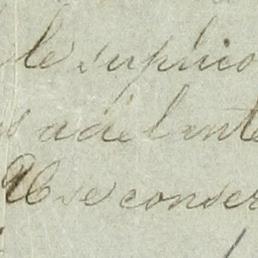 le suplico
adelante
se conser